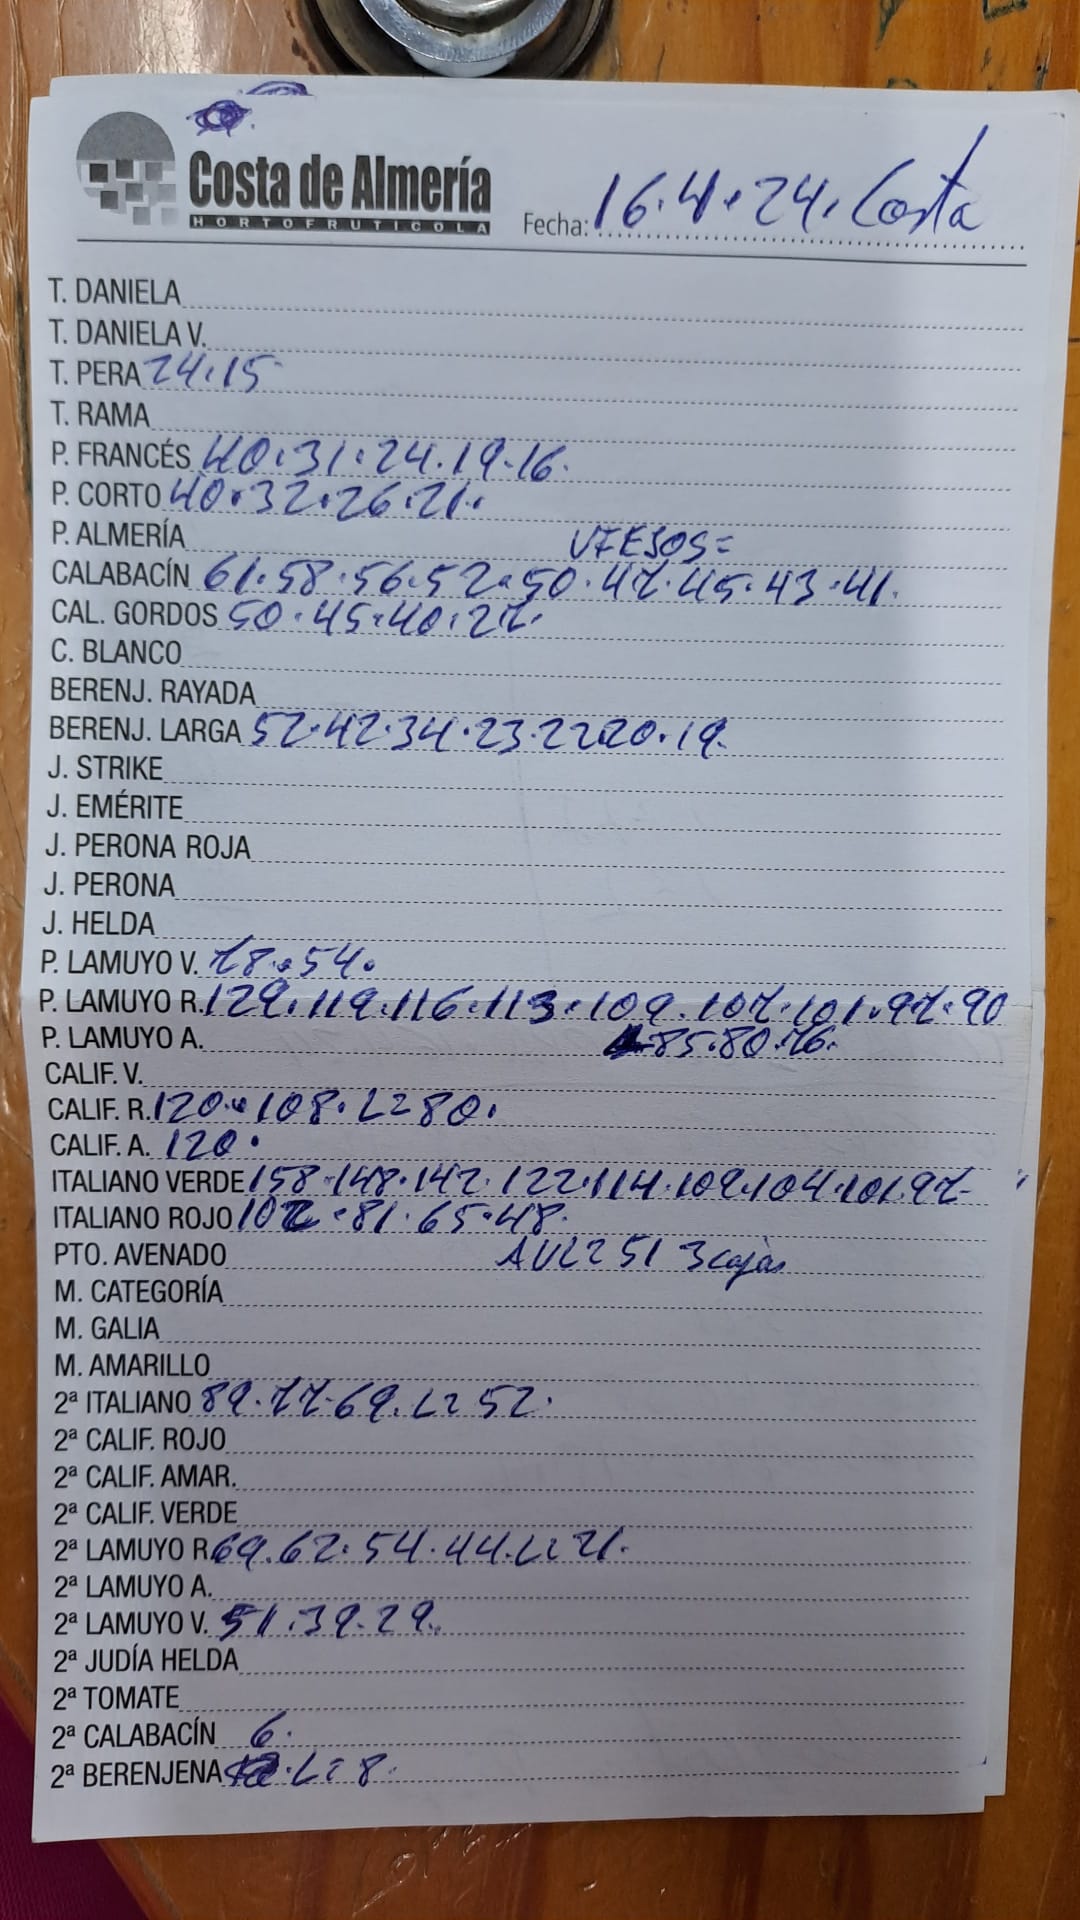 Costa de Almería
HORTOFRUTICOLA
Fecha: 16.4.24. Costa
T. DANIELA
T. DANIELA V.
T. PERA 24.15
T. RAMA
P. FRANCÉS 40.31.24.19.16.
P. CORTO 40.32.26.21.
P. ALMERÍA
CALABACÍN 61.58.56.52.50.47.45.43.41.
CAL. GORDOS 50.45.40.27.
C. BLANCO
BERENJ. RAYADA
BERENJ. LARGA 52.42.34.23.22.20.19.
J. STRIKE
J. EMÉRITE
J. PERONA ROJA
J. PERONA
J. HELDA
P. LAMUYO V. 78.54.
P. LAMUYO R. 129.119.116.113.109.107.101.97.90
P. LAMUYO A. 85.80.76.
CALIF. V.
CALIF. R. 120.108.L=80.
CALIF. A. 120.
ITALIANO VERDE 158.148.142.122.114.109.104.101.97-
ITALIANO ROJO 107.81.65.48.
PTO. AVENADO 51 3 cajas
M. CATEGORÍA
M. GALIA
M. AMARILLO
2ª ITALIANO 89.77.69.L=52.
2ª CALIF. ROJO
2ª CALIF. AMAR.
2ª CALIF. VERDE
2ª LAMUYO R. 69.62.54.44.L=21.
2ª LAMUYO A.
2ª LAMUYO V. 51.39.29.
2ª JUDÍA HELDA
2ª TOMATE
2ª CALABACÍN 6.
2ª BERENJENA L=8.